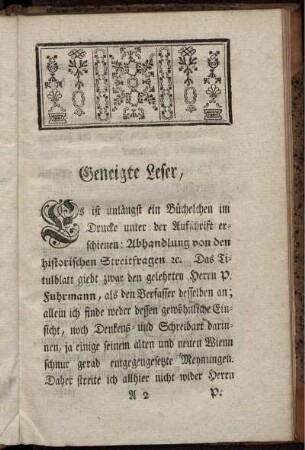 Geneigte Leser,
Es ist unlängst ein Büchelchen im
Drucke unter der Aufschrift er-
schienen: Abhandlung von den
historischen Streitfragen ꝛc. Das Ti-
tulblatt giebt zwar den gelehrten Herrn P.
Fuhrmann, als den Verfasser desselben an;
allein ich finde weder dessen gewöhnliche Ein-
sicht, noch Denkens- und Schreibart darin-
nen, ja einige seinem alten und neuen Wienn
schnur gerad entgegengesetzte Meynungen.
Daher streite ich allhier nicht wider Herrn
A 2 P.